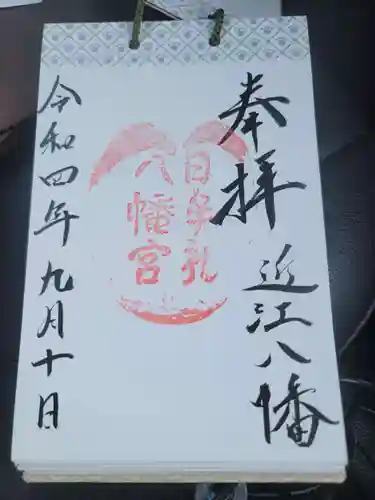 奉拝
近江八幡
日牟礼
八幡宮
令和四年九月十日